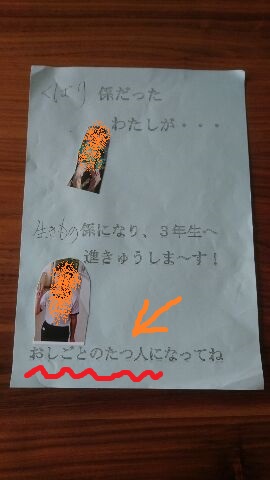 くばり係だった
わたしが・・・
生きもの係になり、３年生へ
進きゅうしま〜す！
おしごとのたつ人になってね